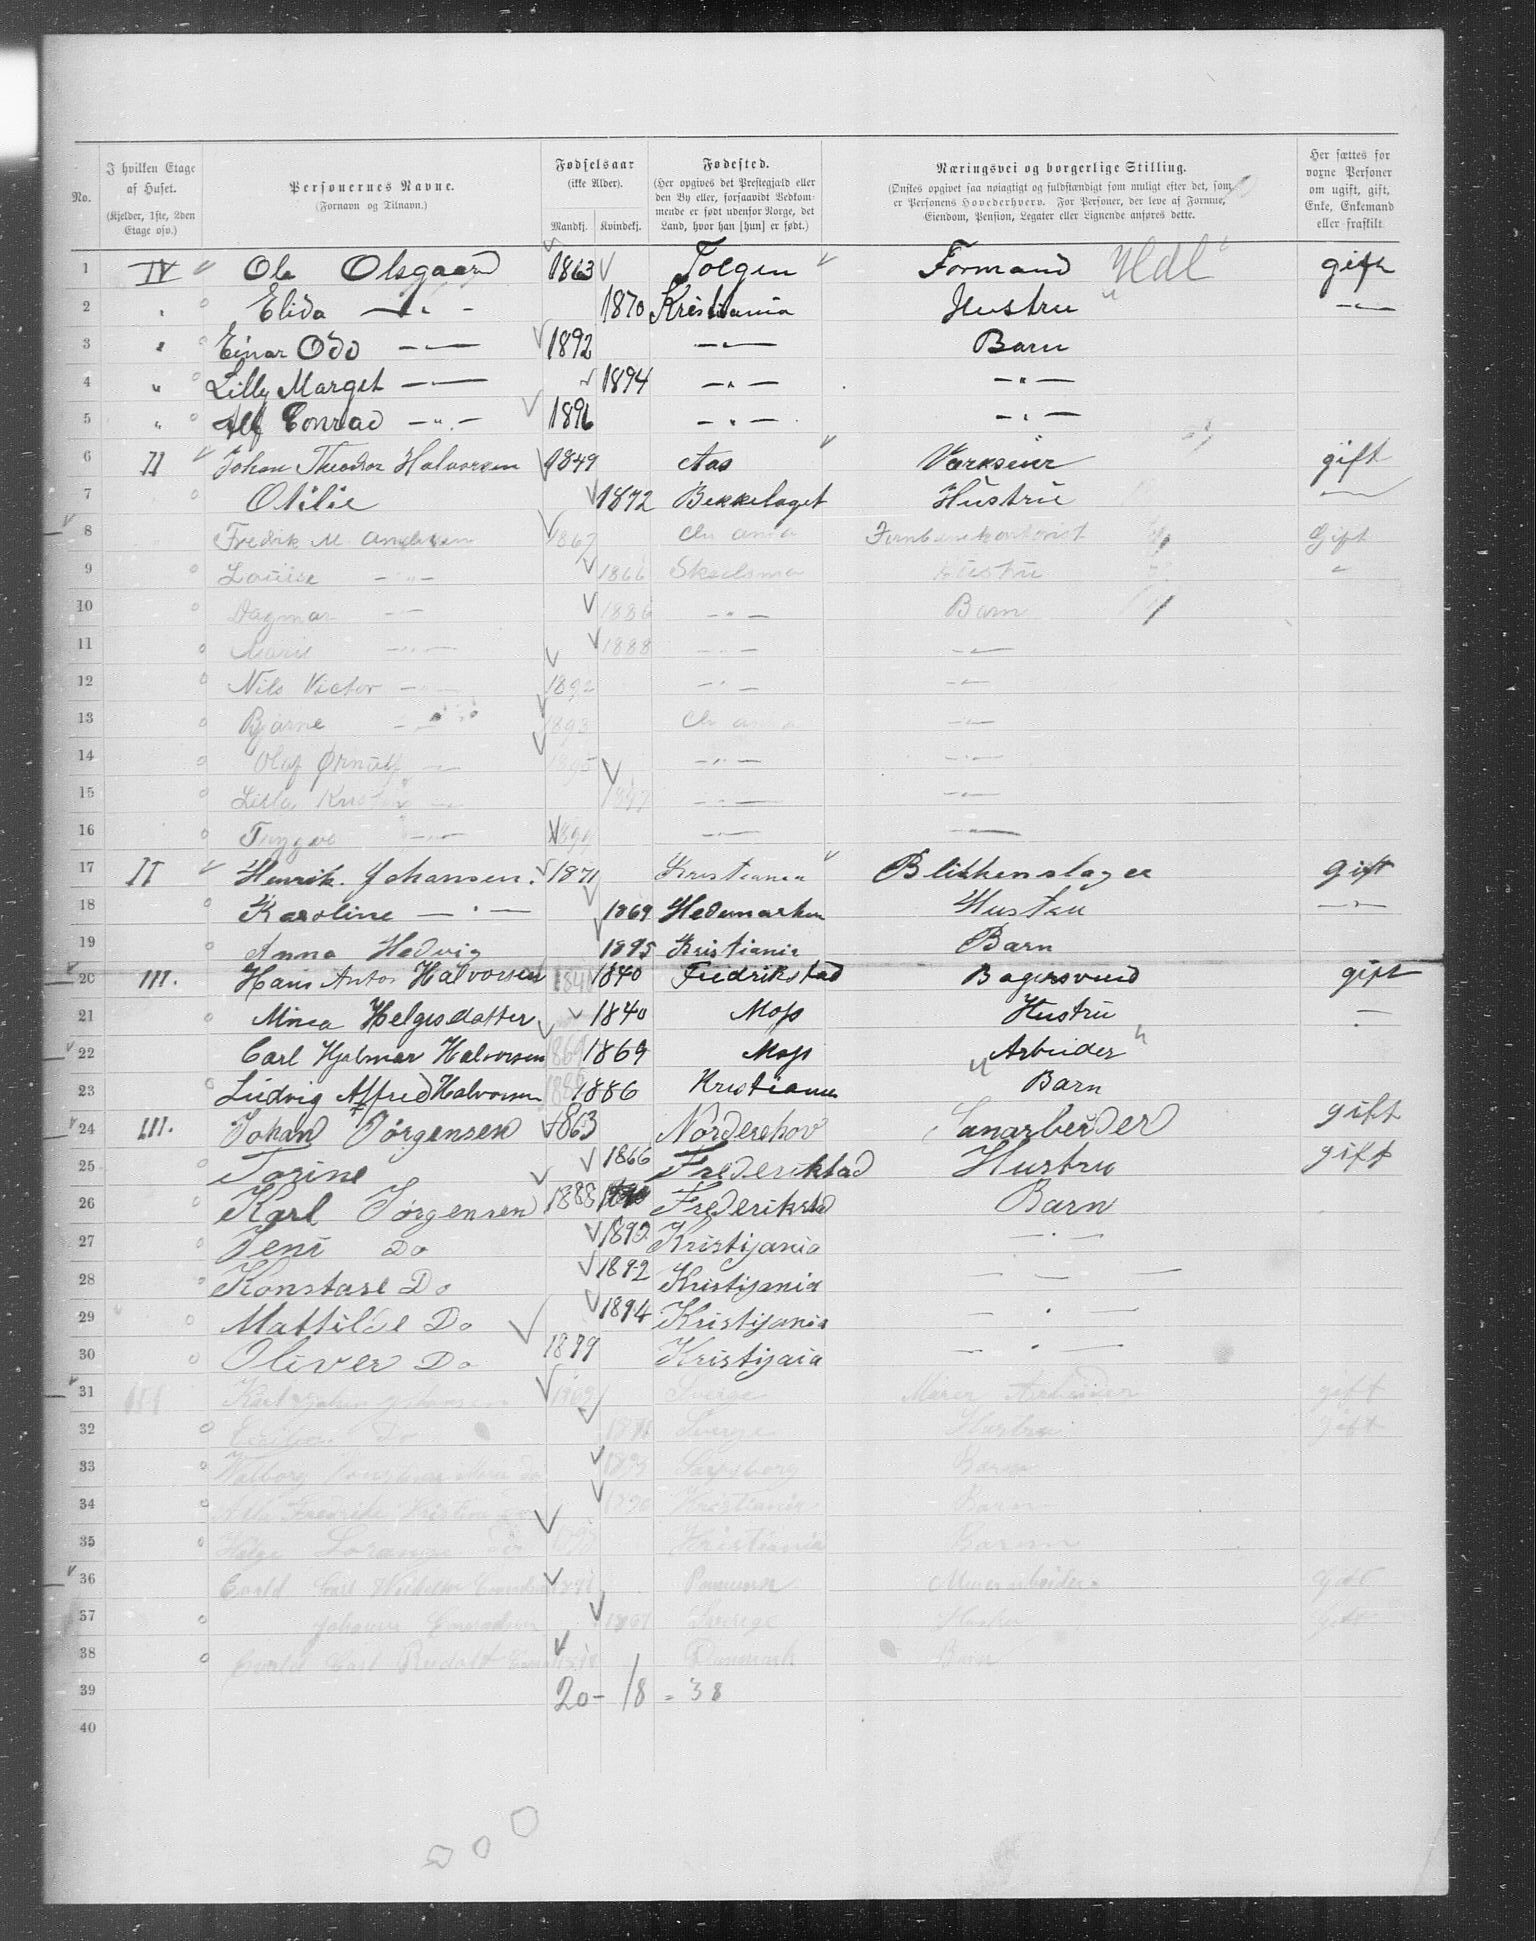 No.
I hvilken Etage af Huset. (Kjelder, 1ste, 2den Etage osv.)
Personernes Navne. (Fornavn og Tilnavn.)
Fødselsaar (ikke Alder). Mandkj. Kvindekj.
Fødested. (Her opgives det Prestegjald eller den By eller, forsaavidt Vedkommende er født udenfor Norge, det Land, hvor han [hun] er født.)
Næringsvei og borgerlige Stilling. (Ønskes opgivet saa nøiagtigt og fuldstændigt som muligt efter det, som er Personens Hovederhverv. For Personer, der leve af Formue, Eiendom, Pension, Legater eller Lignende anføres dette.
Her sættes for voxne Personer om ugift, gift, Enke, Enkemand eller fraskilt
1 IV Ole Olsgaard 1863 Tolgen Formand gift
2 " Elida — " — 1870 Kristiania Hustru — " —
3 " Einar Odd — " — 1892 — " — Barn
4 " Lilly Marget — " — 1894 — " — — " —
5 " Alf Conrad — " — 1896 — " — — " —
6 II Johan Theodor Halvorsen 1849 Aas gift
7 Otilie 1872 Bekkelaget Hustru — " —
8 Fredrik M. Andersen 1867 Chr ania Gift
9 Louise — " — 1866 Hustru "
10 Dagmar — " — 1886 — " — Barn
11 Marie — " — 1888 — " — — " —
12 Nils Victor — " — 1892 — " — — " —
13 Bjarne — " — 1893 Chr ania — " —
14 Olaf Ørnulf — " — 1895 — " — — " —
15 1897 — " — — " —
16 Trygve — " — 1899 — " — — " —
17 II Henrik Johansen. 1871 Kristiania Blikkenslager gift
18 Karoline — " — 1869 Hedemarken Hustru — " —
19 Anna Hedvig 1895 Kristiania Barn
20 III. Hans Anton Halvorsen 1840 1840 Fredrikstad Bagersvend gift
21 Minea Helgesdatter 1840 Moss Hustru — " —
22 Carl Hjalmar Halvorsen 1869 1869 Moss Arbeider
23 Ludvig Alfred Halvorsen 1886 1886 Kristiania Barn
24 III. Johan Jørgensen 1863 Norderehov gift
25 Torine 1866 Frederikstad Hustru gift
26 Karl Jørgensen 1888 Frederikstad Barn
27 Jeni Do 1890 Kristijania — " —
28 Konstase Do 1892 Kristijania — " —
29 Mattilde Do 1894 Kristijania — " —
30 Oliver Do 1899 Kristijaia — " —
31 III Karl Johan Johansen Sverge Murer Arbeider gift
32 Do Sverge Hustru gift
33 Valborg 1895 Sarpsborg Barn
34 Fredrikke Kristiania Barn
35 Helge Kristiania Barn
36 Evald Carl Danmark Murerarbeider Gift
37 Johanne Sverige Hustru Gift
38 Evald Carl Rudolf Danmark Barn
39 20 - 18 = 38
40